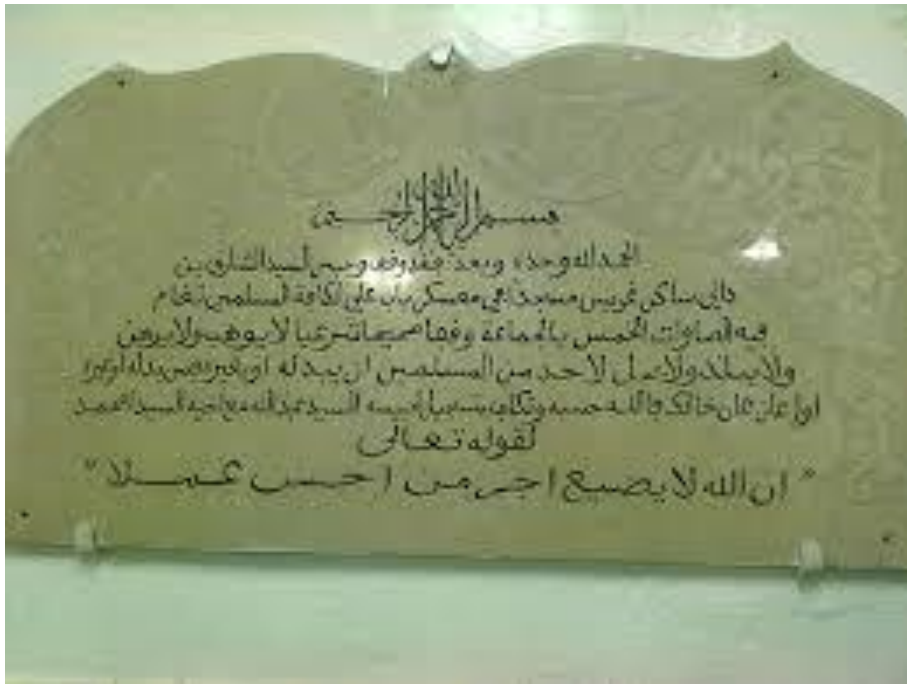 بسم الله الرحمن الرحيم
الحمد لله وحده وبعد فقد وقف وحبس السيد الشارف بن
ساكن غريس مسجدا في معسكر باب علي لكافة المسلمين تقام
فيه الصلوات الخمس بالجماعة وقفا صحيحا شرعيا لا يوهب ولا يرهن
ولا لاحد من المسلمين ان يبدله او يغيره فمن بدله او غيره
او اعان على ذالك فالله حسبه السيد عبد الله مع اخيه السيد امحمد
لقوله تعالى
" ان الله لا يضيع اجر من احسن عملا "